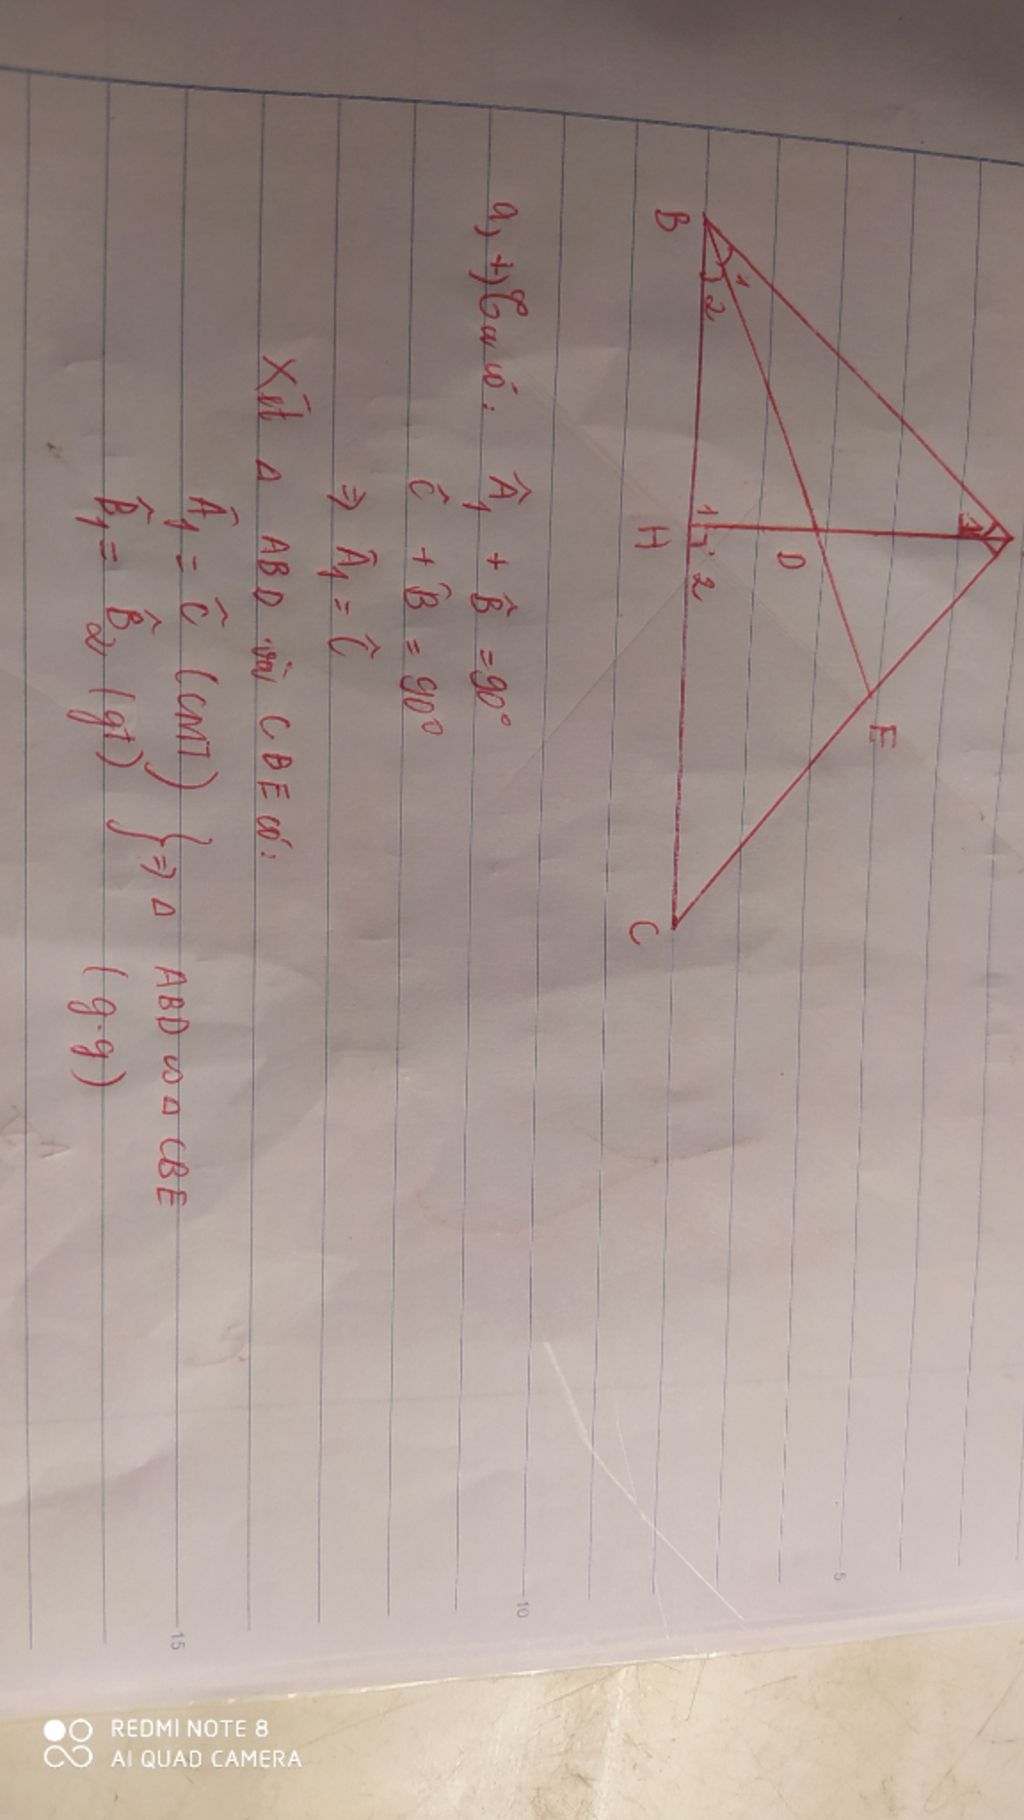 B
1
2
H
1
2
D
E
C
a, +) Ta có: Â₁ + B̂ = 90°
Ĉ + B̂ = 90°
⇒ Â₁ = Ĉ
Xét Δ ABD và CBE có:
Â₁ = Ĉ (CMT)
B̂₁ = B̂₂ (gt) } ⇒ Δ ABD ∽ Δ CBE
(g.g)
5
10
15
REDMI NOTE 8
AI QUAD CAMERA